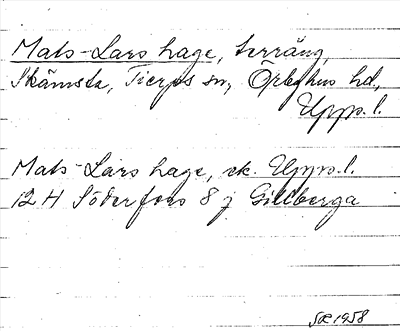 Mats-Lars hage, terräng,
Skämsta, Tierps sn, Örbyhus hd,
Upps. l.
Mats-Lars hage, ek. Upps. l.
12 H Söderfors 8 j Gillberga
1958